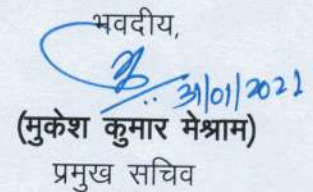 भवदीय,
31/01/2022
(मुकेश कुमार मेश्राम)
प्रमुख सचिव